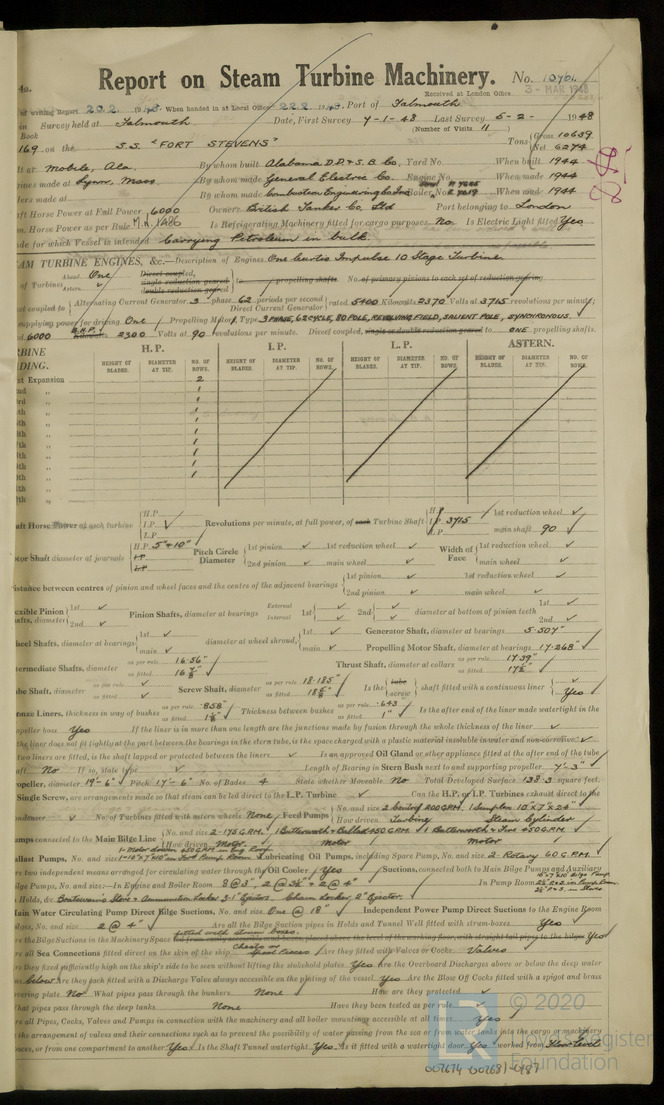 4a.
Report on Steam Turbine Machinery. No. 10461.
Received at London Office 3 - MAR 1948
of writing Report 20.2. 1948. When handed in at Local Office 22.2. 1948. Port of Falmouth
in Survey held at Falmouth Date, First Survey 7-1-48 Last Survey 5-2- 1948
Book (Number of Visits 11)
169 on the S.S. "FORT STEVENS" Tons {Gross 10639 Net 6274
Mobile, Ala. By whom built Alabama D.D. & S.B. Co. Yard No. When built 1944
Lynn, Mass By whom made General Electric Co. Engine No. When made 1944
By whom made Combustion Engineering Co Inc Boiler No. When made 1944
Horse Power at Full Power 6000 Owners British Tanker Co. Ltd Port belonging to London
Horse Power as per Rule M.N. 1486 Is Refrigerating Machinery fitted for cargo purposes No. Is Electric Light fitted Yes
for which Vessel is intended Carrying Petroleum in bulk.
TURBINE ENGINES, &c.—Description of Engines One Curtis Impulse 10 Stage Turbine
of Turbines Ahead One Astern Direct coupled, single reduction geared double reduction geared to propelling shafts. No. of primary pinions to each set of reduction gearing
coupled to Alternating Current Generator 3 phase 62 periods per second Direct Current Generator rated 5400 Kilowatts 2370 Volts at 3715 revolutions per minute;
supplying power for driving One Propelling Motor, Type 3 PHASE, 62 CYCLE, 80 POLE, REVOLVING FIELD, SALIENT POLE, SYNCHRONOUS.
6000 B.H.P. 2300 Volts at 90 revolutions per minute. Direct coupled, single or double reduction geared to ONE propelling shafts.
H.P. I.P. L.P. ASTERN.
HEIGHT OF BLADES. DIAMETER AT TIP. NO. OF ROWS. HEIGHT OF BLADES. DIAMETER AT TIP. NO. OF ROWS. HEIGHT OF BLADES. DIAMETER AT TIP. NO. OF ROWS. HEIGHT OF BLADES. DIAMETER AT TIP. NO. OF ROWS.
Expansion 2
1
1
1
1
1
1
1
1
1
Horse Power at each turbine {H.P. I.P. L.P. Revolutions per minute, at full power, of each Turbine Shaft {H.P. I.P. 3715 L.P. 1st reduction wheel main shaft 90
Shaft diameter at journals {H.P. 5" & 10" I.P. L.P. Pitch Circle Diameter {1st pinion 1st reduction wheel 2nd pinion main wheel Width of Face {1st reduction wheel main wheel
Distance between centres of pinion and wheel faces and the centre of the adjacent bearings {1st pinion 1st reduction wheel 2nd pinion main wheel
Flexible Pinion Shafts, diameter {1st 2nd Pinion Shafts, diameter at bearings External Internal 1st 2nd diameter at bottom of pinion teeth 1st 2nd
Wheel Shafts, diameter at bearings {1st main diameter at wheel shroud, {1st main Generator Shaft, diameter at bearings 5.507" Propelling Motor Shaft, diameter at bearings 17.268"
Intermediate Shafts, diameter as per rule 16.56" as fitted Thrust Shaft, diameter at collars as per rule 17.39" as fitted
Tube Shaft, as per rule as fitted Screw Shaft, diameter as per rule 18.185" as fitted Is the tube screw shaft fitted with a continuous liner Yes
Bronze Liners, thickness in way of bushes as per rule .858" as fitted Thickness between bushes as per rule .643 as fitted 1" Is the after end of the liner made watertight in the
propeller boss Yes If the liner is in more than one length are the junctions made by fusion through the whole thickness of the liner
the liner does not fit tightly at the part between the bearings in the stern tube, is the space charged with a plastic material insoluble in water and non-corrosive
two liners are fitted, is the shaft lapped or protected between the liners Is an approved Oil Gland or other appliance fitted at the after end of the tube
No If so, state type Length of Bearing in Stern Bush next to and supporting propeller 7'-3"
Propeller, diameter 19'-6" Pitch 17'-6" No. of Blades 4 State whether Moveable No Total Developed Surface 138.3 square feet.
Single Screw, are arrangements made so that steam can be led direct to the L.P. Turbine Can the H.P. or I.P. Turbines exhaust direct to the
No. of Turbines fitted with astern wheels None Feed Pumps {No. and size 2 Centrif 200 G.P.M. 1 Simplex 10"x7"x24" How driven Turbine Steam Cylinder
Pumps connected to the Main Bilge Line {No. and size 2-175 G.P.M. 1 Butterworth & Ballast 450 G.P.M. 1 Butterworth & Fire 450 G.P.M. How driven Motor Motor Motor
Ballast Pumps, No. and size Lubricating Oil Pumps, including Spare Pump, No. and size 2 Rotary 60 G.P.M.
two independent means arranged for circulating water through the Oil Cooler Yes Suctions, connected both to Main Bilge Pumps and Auxiliary
Bilge Pumps, No. and size:—In Engine and Boiler Room 8 @ 3", 2 @ 3½" & 2 @ 4" In Pump Room
Holds, &c. Chain Locker, 2" Ejector.
Main Water Circulating Pump Direct Bilge Suctions, No. and size One @ 18" Independent Power Pump Direct Suctions to the Engine Room
Bilges, No. and size 2 @ 4" Are all the Bilge Suction pipes in Holds and Tunnel Well fitted with strum-boxes Yes
the Bilge Suctions in the Machinery Space fitted with strum boxes. led from easily accessible mud boxes, placed above the level of the working floor, with straight tail pipes to the bilges Yes
all Sea Connections fitted direct on the skin of the ship Chests or Spool Pieces Are they fitted with Valves or Cocks Valves
they fixed sufficiently high on the ship's side to be seen without lifting the stokehold plates Yes Are the Overboard Discharges above or below the deep water
below Are they each fitted with a Discharge Valve always accessible on the plating of the vessel Yes Are the Blow Off Cocks fitted with a spigot and brass
covering plate No What pipes pass through the bunkers None How are they protected
What pipes pass through the deep tanks None Have they been tested as per rule
all Pipes, Cocks, Valves and Pumps in connection with the machinery and all boiler mountings accessible at all times Yes
the arrangement of valves and their connections such as to prevent the possibility of water passing from the sea or from water tanks into the cargo or machinery
spaces, or from one compartment to another Yes Is the Shaft Tunnel watertight Yes Is it fitted with a watertight door Yes worked from
© 2020
Lloyd's Register
Foundation
LR
002674-002681-0187